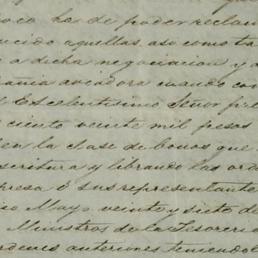 poco ha de poder reclam
ucido aquellas, asi como ta
e a dicha negociacion, y a
añia aviadora cuando con
l Escelentisimo Señor pre
o ciento veinte mil pesos
en la clase de bonos que
scritura y librando las ord
presa ó sus representante
so Mayo veinte y siete de
Ministros de la Tesoreria
rdenes anteriores teniendo